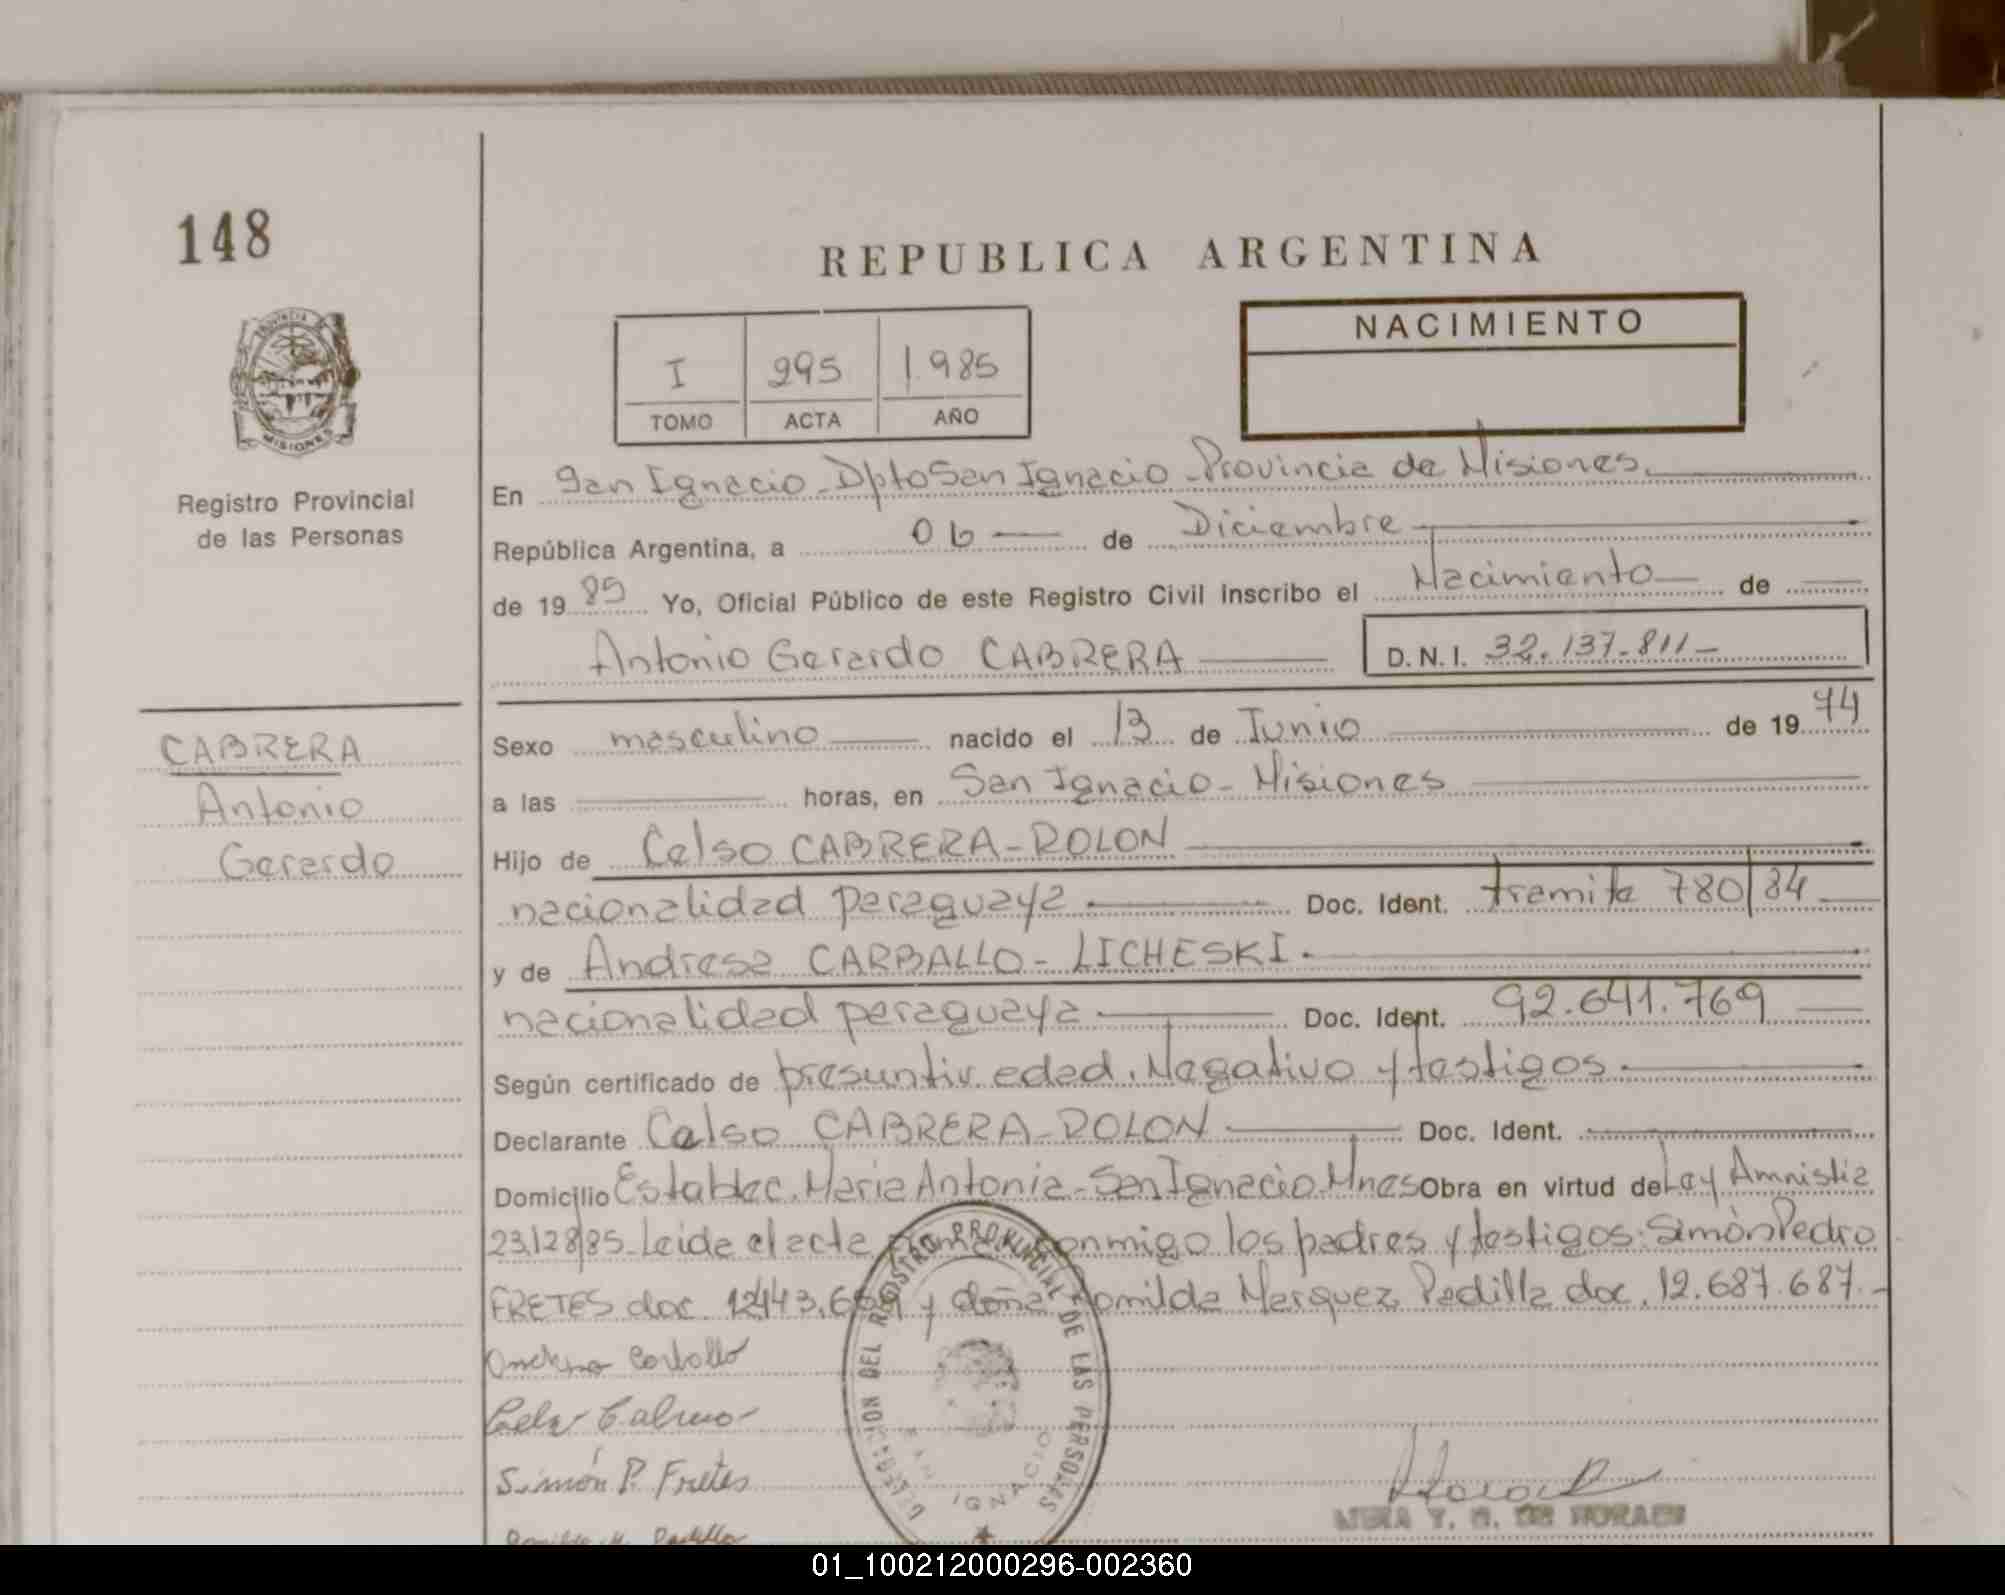 148
REPUBLICA ARGENTINA
PROVINCIA
MISIONES
Registro Provincial
de las Personas
I 295 1.985
TOMO ACTA AÑO
NACIMIENTO
En San Ignacio - Dpto San Ignacio - Provincia de Misiones.
República Argentina, a 06 de Diciembre
de 19 85 Yo, Oficial Público de este Registro Civil inscribo el Nacimiento de
Antonio Gerardo CABRERA D.N.I. 32.137.811-
CABRERA
Antonio
Gerardo
Sexo masculino nacido el 13 de Junio de 19 74
a las horas, en San Ignacio - Misiones
Hijo de Celso CABRERA - ROLON
nacionalidad paraguaya Doc. Ident. tramite 780/84
y de Andresa CARBALLO - LICHESKI.
nacionalidad paraguaya Doc. Ident. 92.641.769
Según certificado de presuntiv. edad. Negativo y testigos
Declarante Celso CABRERA - ROLON Doc. Ident.
Domicilio Establec. Maria Antonia - San Ignacio. Mnes Obra en virtud de Ley Amnistia
Leida el acta conmigo los padres y testigos: Simón Pedro
FRETES doc. y doña Romilda Marquez Padilla doc. 12.687.687.-
Carballo
Simón P. Fretes
Padilla
DELEGACION DEL REGISTRO PROVINCIAL DE LAS PERSONAS
SAN IGNACIO
Y. DE MORAES
01_100212000296-002360